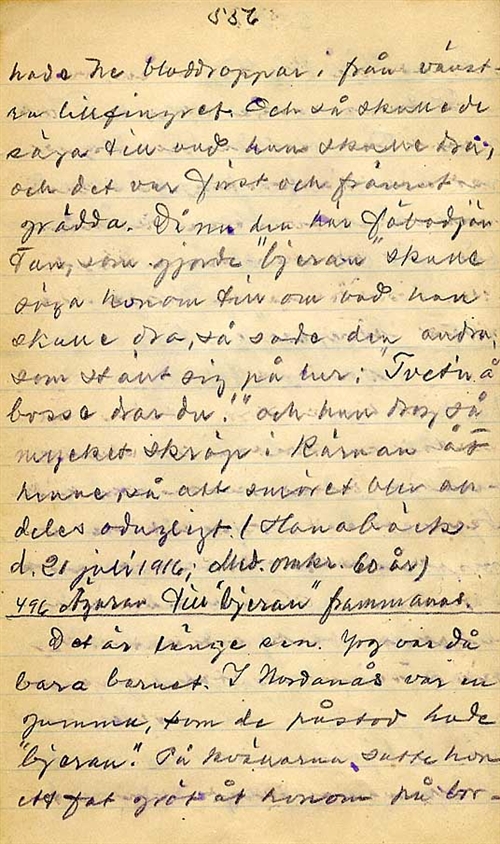 556
hade tre bloddroppar i från vänst-
ra lillfingret. Och så skulle de
säga till vad han skulle dra,
och det var först och främst
grädda. Då nu den här fäbodjän-
tan, som gjorde "bjeran" skulle
säga honom till om vad han
skulle dra, så sade den andra,
som stänt sig på lur: "Tvet'n å
bosse drar du!" och han drog så
mycket skräp i kärnan åt
henne, så att smöret blev al-
deles odugligt. (Hanabäck
d. 21 juli 1916; Med. omkr. 60 år)
496 Ägaren till "bjeran" frammanas.
Det är länge sen. Jag var då
bara barnet. I Nordanås var en
gumma, som de påstod hade
"bjeran". På kvällarna satte hon
ett fat gröt åt honom på bro-